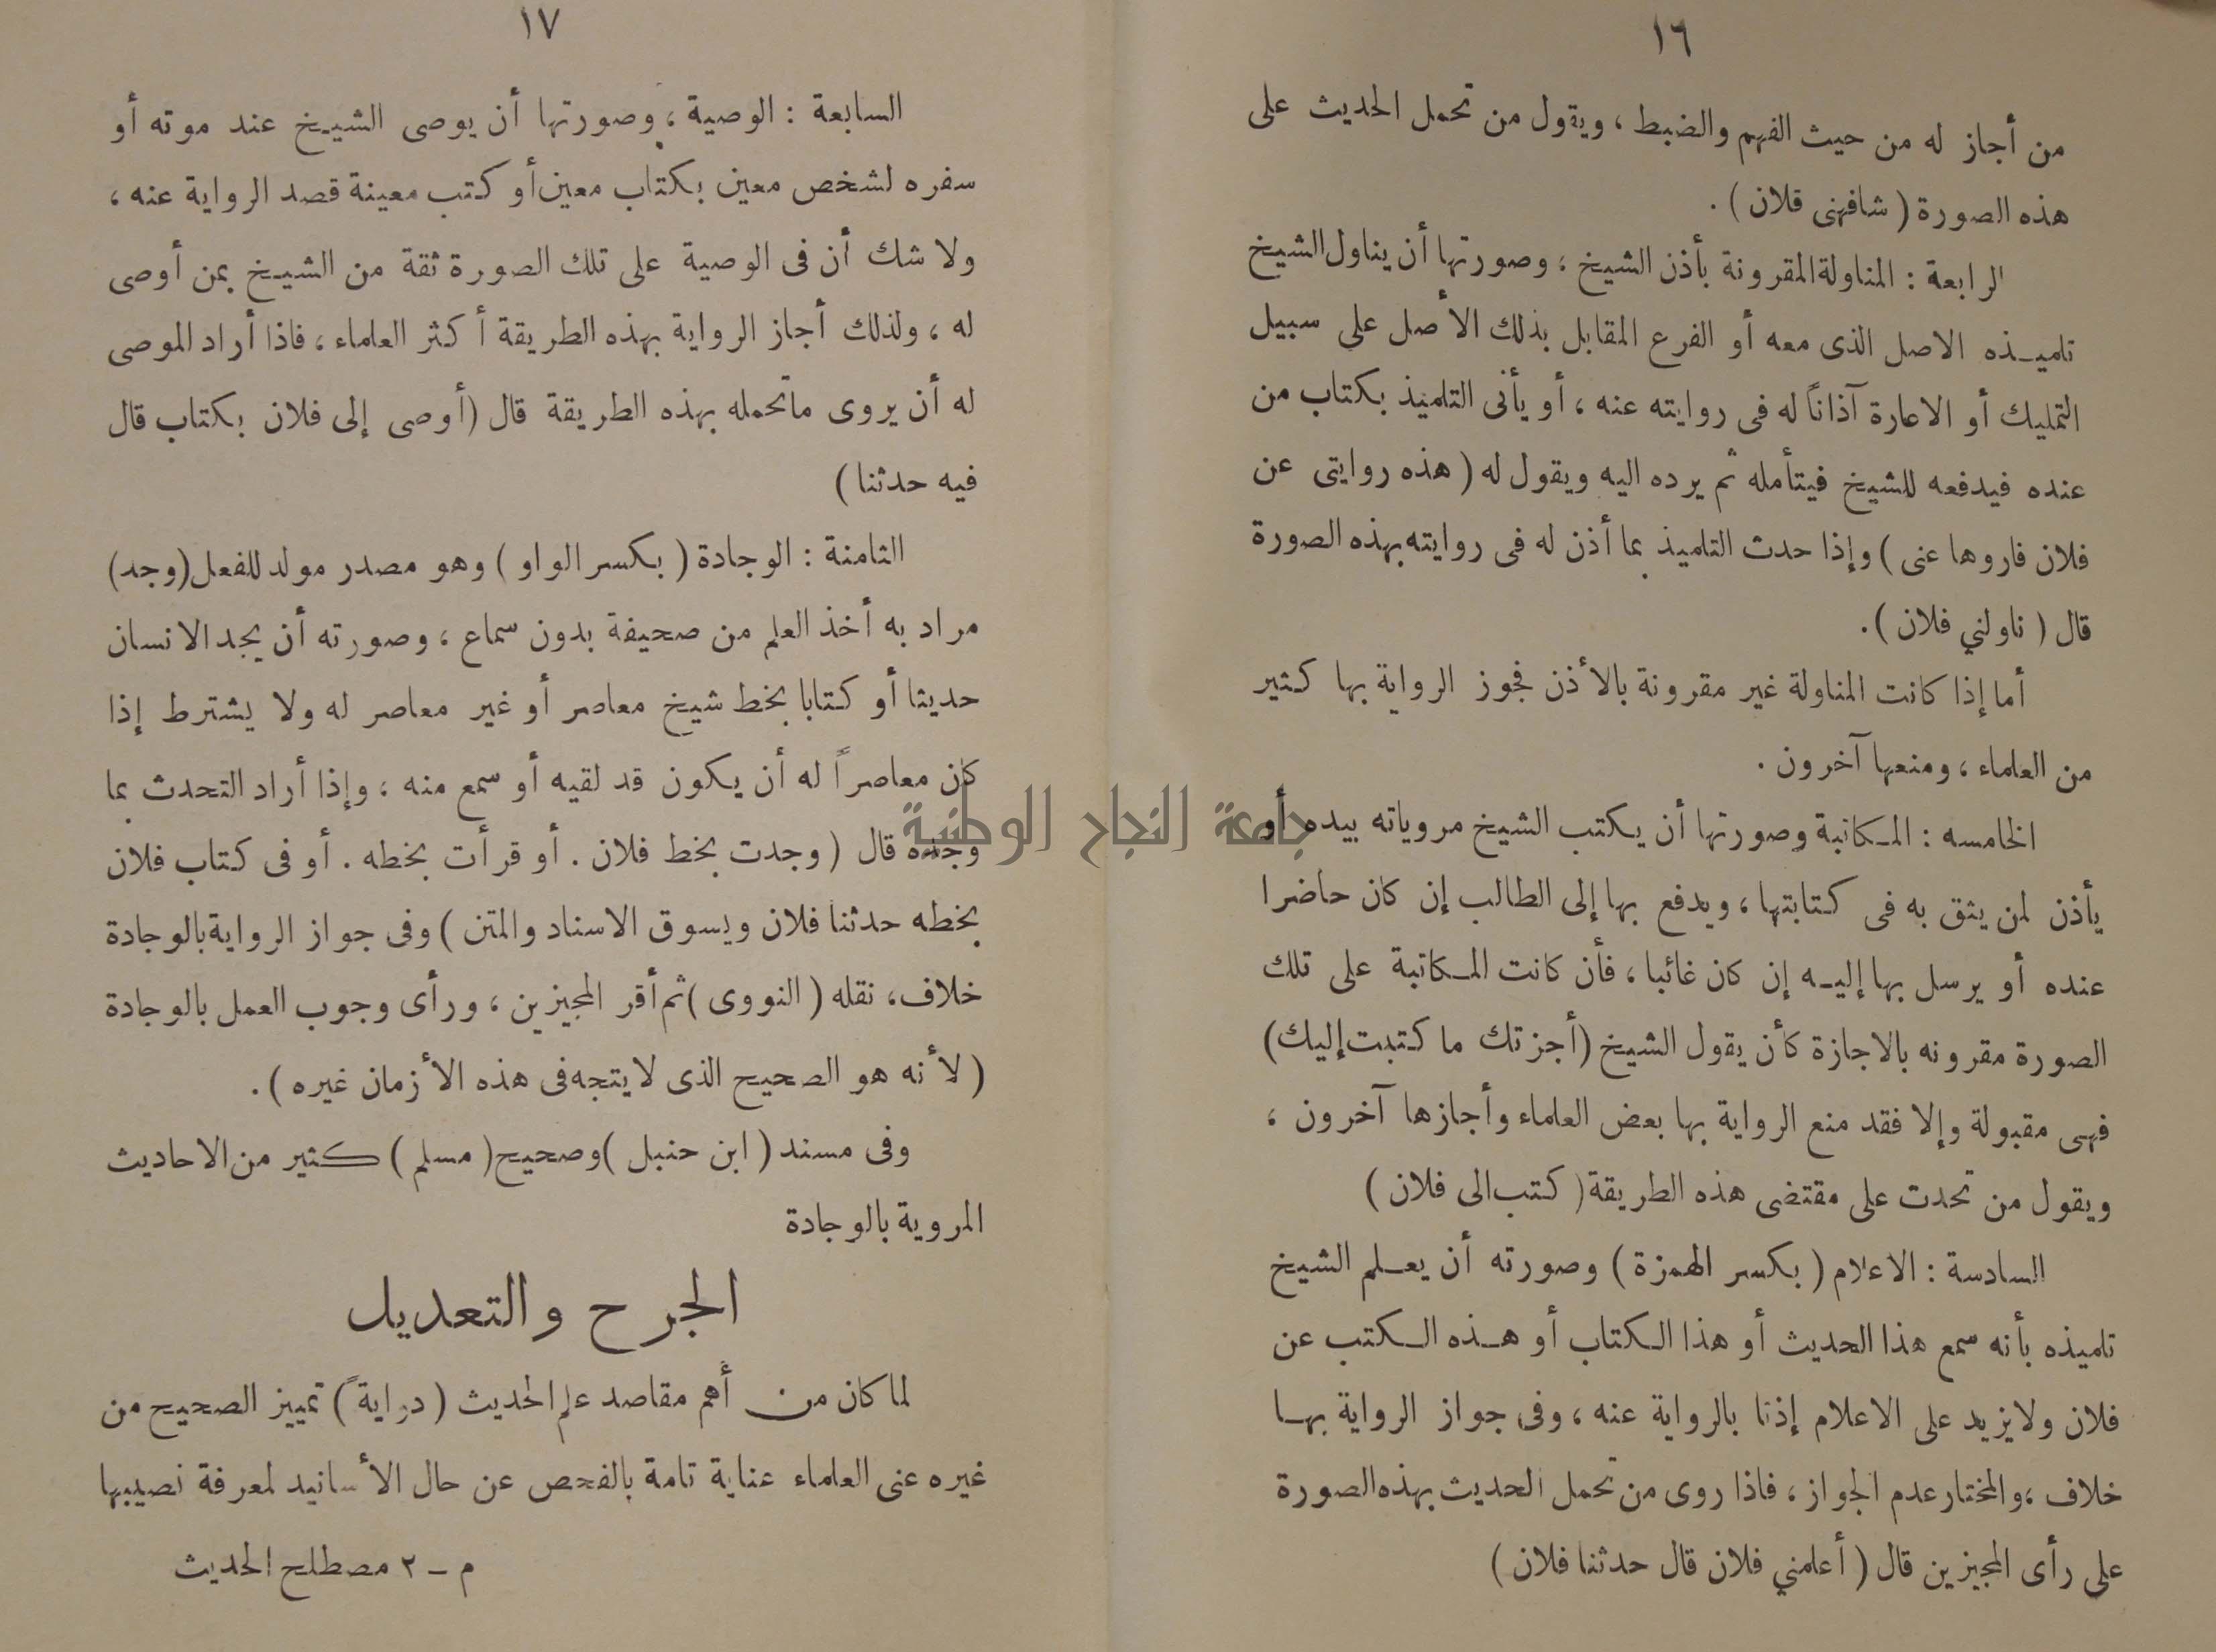 ١٦
من أجاز له من حيث الفهم والضبط ، ويقول من تحمل الحديث على
هذه الصورة ( شافهنى قلان ) .
الرابعة : المناولة المقرونة بأذن الشيخ ، وصورتها أن يناول الشيخ
تلميـذه الاصل الذى معه أو الفرع المقابل بذلك الأصل على سبيل
التمليك أو الاعارة آذاناً له فى روايته عنه ، أو يأتى التلميذ بكتاب من
عنده فيدفعه للشيخ فيتأمله ثم يرده اليه ويقول له ( هذه روايتى عن
فلان فاروها عنى ) وإذا حدث التلميذ بما أذن له فى روايته بهذه الصورة
قال ( ناولني فلان ) .
أما إذا كانت المناولة غير مقرونة بالأذن فجوز الرواية بها كثير
من العلماء ، ومنعها آخرون .
الخامسه : المـكاتبة وصورتها أن يكتب الشيخ مروياته بيده أو
يأذن لمن يثق به فى كتابتها ، ويدفع بها إلى الطالب إن كان حاضرا
عنده أو يرسل بها إليـه إن كان غائبا ، فأن كانت المـكاتبة على تلك
الصورة مقرونه بالاجازة كأن يقول الشيخ ( أجزتك ما كتبت إليك )
فهى مقبولة وإلا فقد منع الرواية بها بعض العلماء وأجازها آخرون ،
ويقول من تحدث على مقتضى هذه الطريقة ( كتب الى فلان )
السادسة : الاعلام ( بكسر الهمزة ) وصورته أن يعـلم الشيخ
تلميذه بأنه سمع هذا الحديث أو هذا الـكتاب أو هـذه الـكتب عن
فلان ولا يزيد على الاعلام إذنا بالرواية عنه ، وفى جواز الرواية بهـا
خلاف ، والمختار عدم الجواز ، فاذا روى من تحمل الحديث بهذه الصورة
على رأى المجيزين قال ( أعلمني فلان قال حدثنا فلان )
١٧
السابعة : الوصية ، وصورتها أن يوصى الشيـخ عند موته أو
سفره لشخص معين بكتاب معين أو كتب معينة قصد الرواية عنه ،
ولا شك أن فى الوصية على تلك الصورة ثقة من الشيـخ بمن أوصى
له ، ولذلك أجاز الرواية بهذه الطريقة أكثر العلماء ، فاذا أراد الموصى
له أن يروى ما تحمله بهذه الطريقة قال ( أوصى إلى فلان بكتاب قال
فيه حدثنا )
الثامنة : الوجادة ( بكسر الواو ) وهو مصدر مولد للفعل ( وجد )
مراد به أخذ العلم من صحيفة بدون سماع ، وصورته أن يجد الانسان
حديثا أو كتابا بخط شيخ معاصر أو غير معاصر له ولا يشترط إذا
كان معاصراً له أن يكون قد لقيه أو سمع منه ، وإذا أراد التحدث بما
وجده قال ( وجدت بخط فلان . أو قرأت بخطه . أو فى كتاب فلان
بخطه حدثنا فلان ويسوق الاسناد والمتن ) وفى جواز الرواية بالوجادة
خلاف ، نقله ( النووى ) ثم أقر المجيزين ، ورأى وجوب العمل بالوجادة
( لأنه هو الصحيح الذى لا يتجه فى هذه الأزمان غيره ) .
وفى مسند ( ابن حنبل ) وصحيح ( مسلم ) كثير من الاحاديث
المروية بالوجادة
الجرح والتعديل
لما كان من أهم مقاصد علم الحديث ( دراية ً ) تمييز الصحيح من
غيره عنى العلماء عناية تامة بالفحص عن حال الأسانيد لمعرفة نصيبها
م ــ ٢ مصطلح الحديث
جامعة النجاح الوطنية